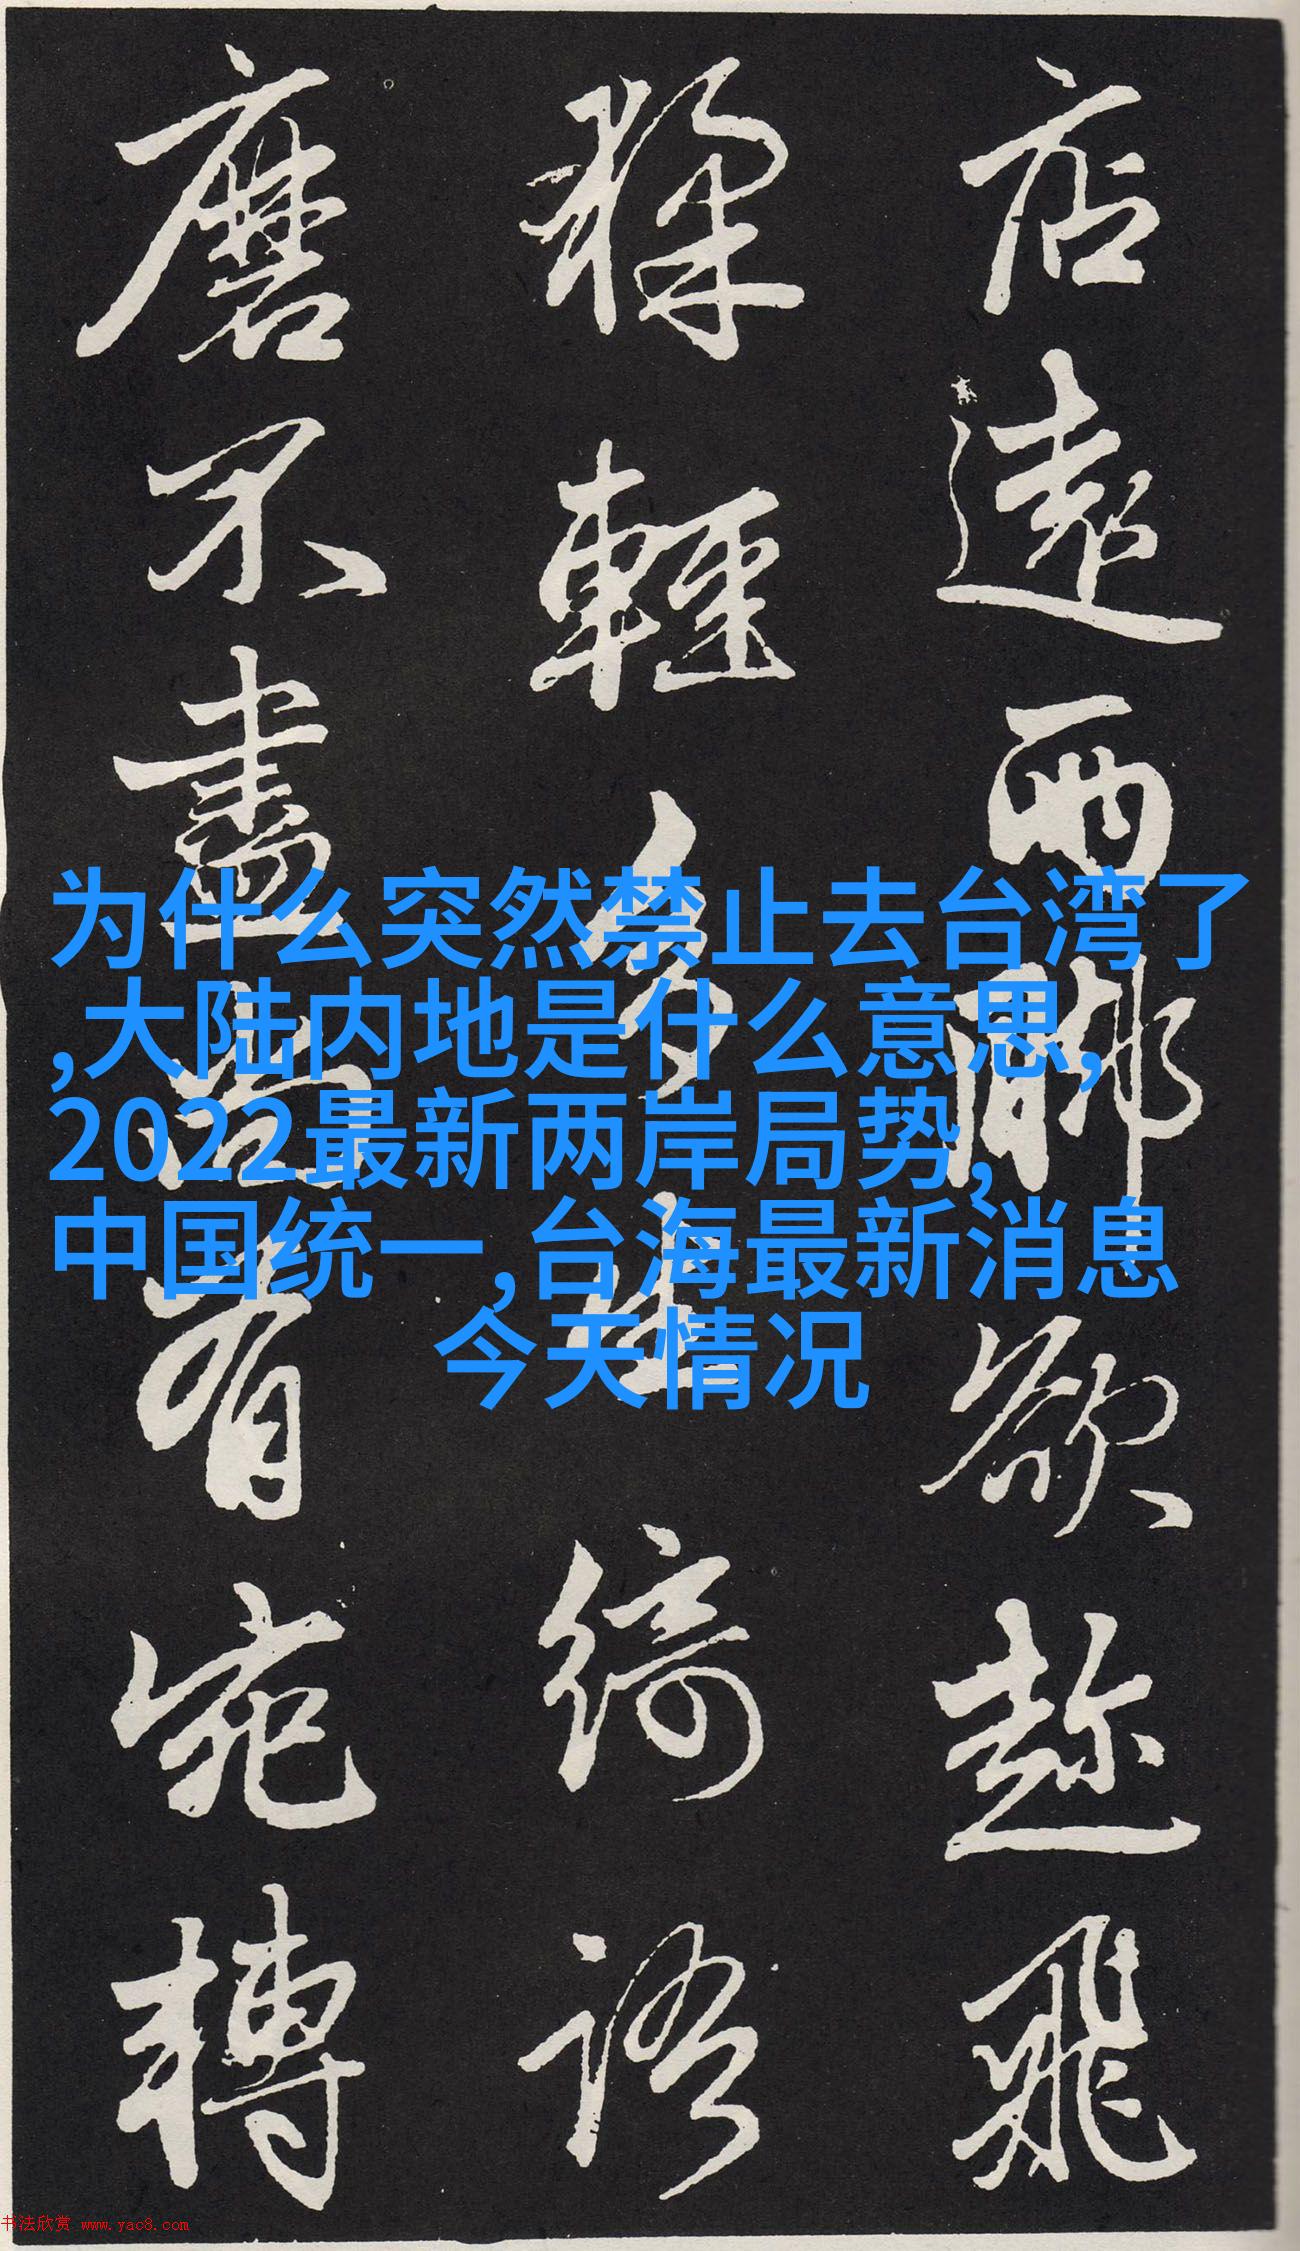 店遠兩聯欲趂飛
輕
綺語
磨不盡
有宛轉
为什么突然禁止去台湾了
,大陆内地是什么意思,
2022最新两岸局势,
中国统一,台海最新消息
今天情况
书法欣赏 www.yac8.com